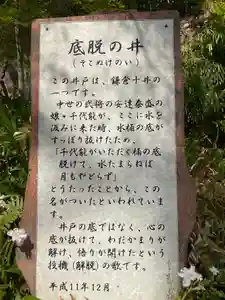 底脱の井
(そこぬけのい)
この井戸は、鎌倉十井の
一つです。
中世の武将の安達泰盛の
娘・千代能が、ここに水を
汲みに来た時、水桶の底が
すっぽり抜けたため、
「千代能がいただく桶の底
脱けて、水たまらねば
月もやどらじ」
とうたったことから、この
名がついたといわれていま
す。
井戸の底ではなく、心の
底が抜けて、わだかまりが
解け、悟りが開けたという
投機(解脱)の歌です。
平成11年12月